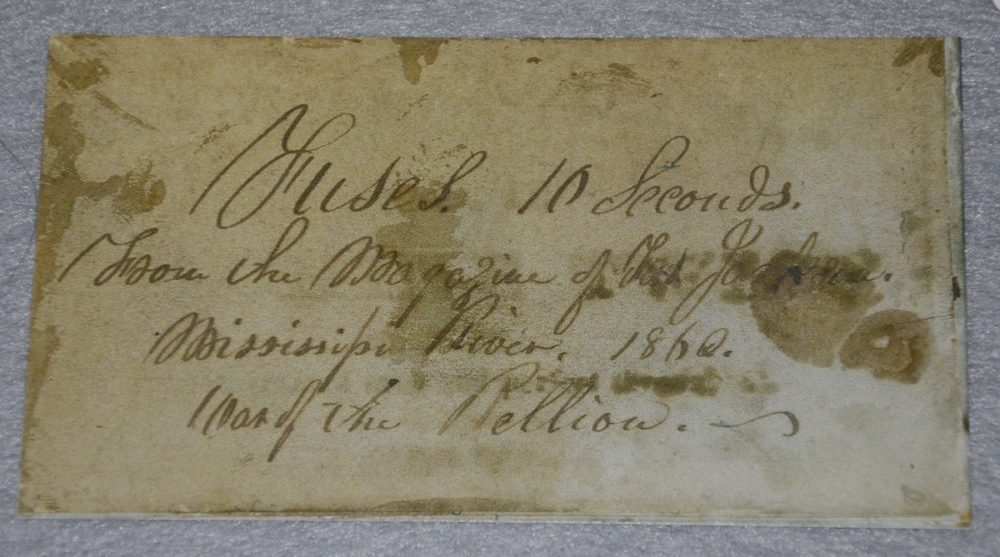 Fuses. 10 Seconds.
From the Magazine of Fort Jackson.
Mississipi River, 1862.
War of the Rellion.